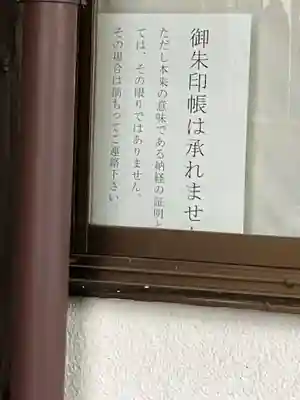 御朱印帳は承れません
ただし本来の意味である納経の証明と
ては、その限りではありません。
その場合は前もってご連絡下さい